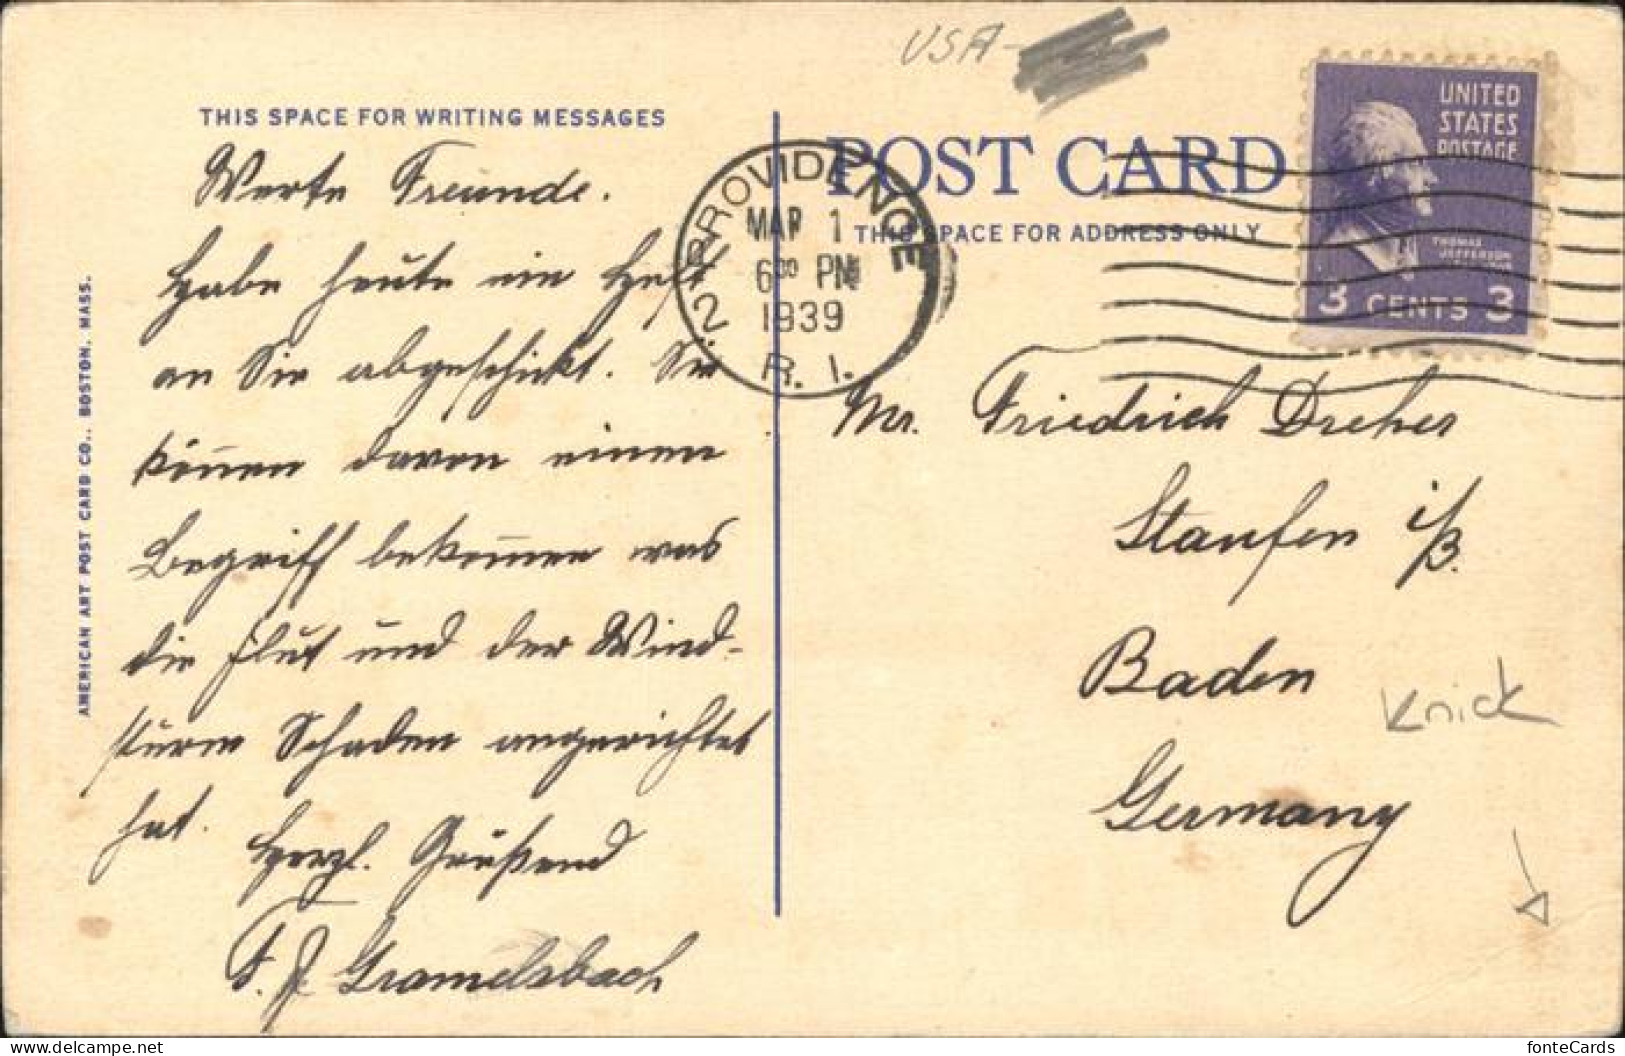 USA
THIS SPACE FOR WRITING MESSAGES
Werte Freunde.
Habe heute ein Heft
an Sie abgeschickt. Sie
können davon einen
Begriff bekommen was
die Flut und der Wind-
sturm Schaden angerichtet
hat.
Herzl. Grüßend
F. J. Gramelsbach
AMERICAN ART POST CARD CO., BOSTON, MASS.
PROVIDENCE 2
MAR 1
6 00 PM
1939
R. I.
POST CARD
THIS SPACE FOR ADDRESS ONLY
UNITED
STATES
POSTAGE
THOMAS
JEFFERSON
3 CENTS 3
Mr. Friedrich Dreher
Staufen i/B.
Baden
Germany
Knick
fonteCards
www.delcampe.net